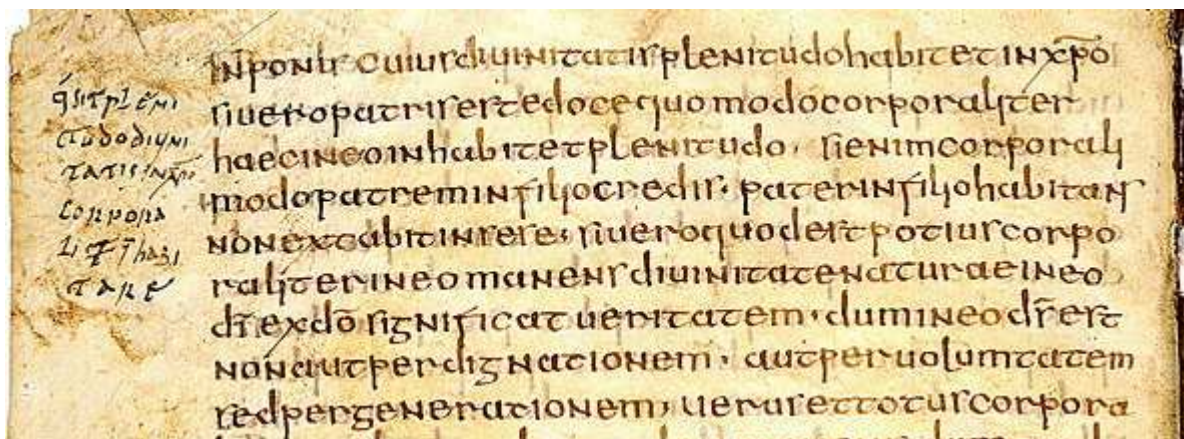 qd sit pleni
tudo diuini
tatis in xpo
corpora
lit inhabi
tare
inponis cuius diuinitatis plenitudo habitet in xpo
si uero patris est edoce quomodo corporaliter
haec in eo inhabitet plenitudo. si enim corporali
modo patrem in filio credis. pater in filio habitans
non extabit in sese. si uero quod est potius corpo
raliter in eo manens diuinitate naturae in eo
ds ex do significat ueritatem. dum in eo ds est
non aut per dignationem. aut per uoluntatem
sed per generationem. uerus et totus corpora